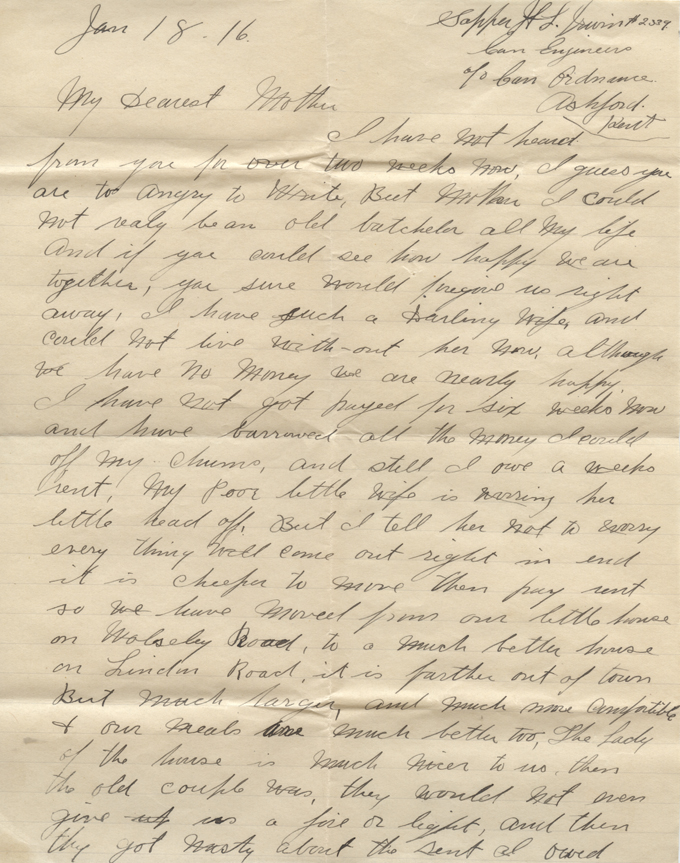 Jan 18 - 16.
Sapper H L Irwin # 2339
Can Engineers
c/o Can Ordnance.
Ashford.
Kent
My Dearest Mother
I have not heard
from you for over two weeks now, I guess you
are to angry to write, But Mother I could
not realy be an old batchelor all my life
And if you could see how happy we are
together, you sure would forgove us right
away, I have such a Darling Wife, and
could not live with-out her now, although
we have no money we are nearly happy.
I have not got payed for six weeks now
and have barrowed all the money I could
off my chums, and still I owe a weeks
rent, My Poor little wife is worring her
little head off, But I tell her not to worry
every thing will come out right in end
it is cheeper to move then pay rent
so we have moved from our little house
on Wolseley Road, to a much better house
on London Road, it is farther out of town
But much larger, and much more comfortible
& our meals are much better too, The Lady
of the house is much nicer to us, then
the old couple was, they would not even
give us a fire or light, and then
thy got nasty about the rent I owed